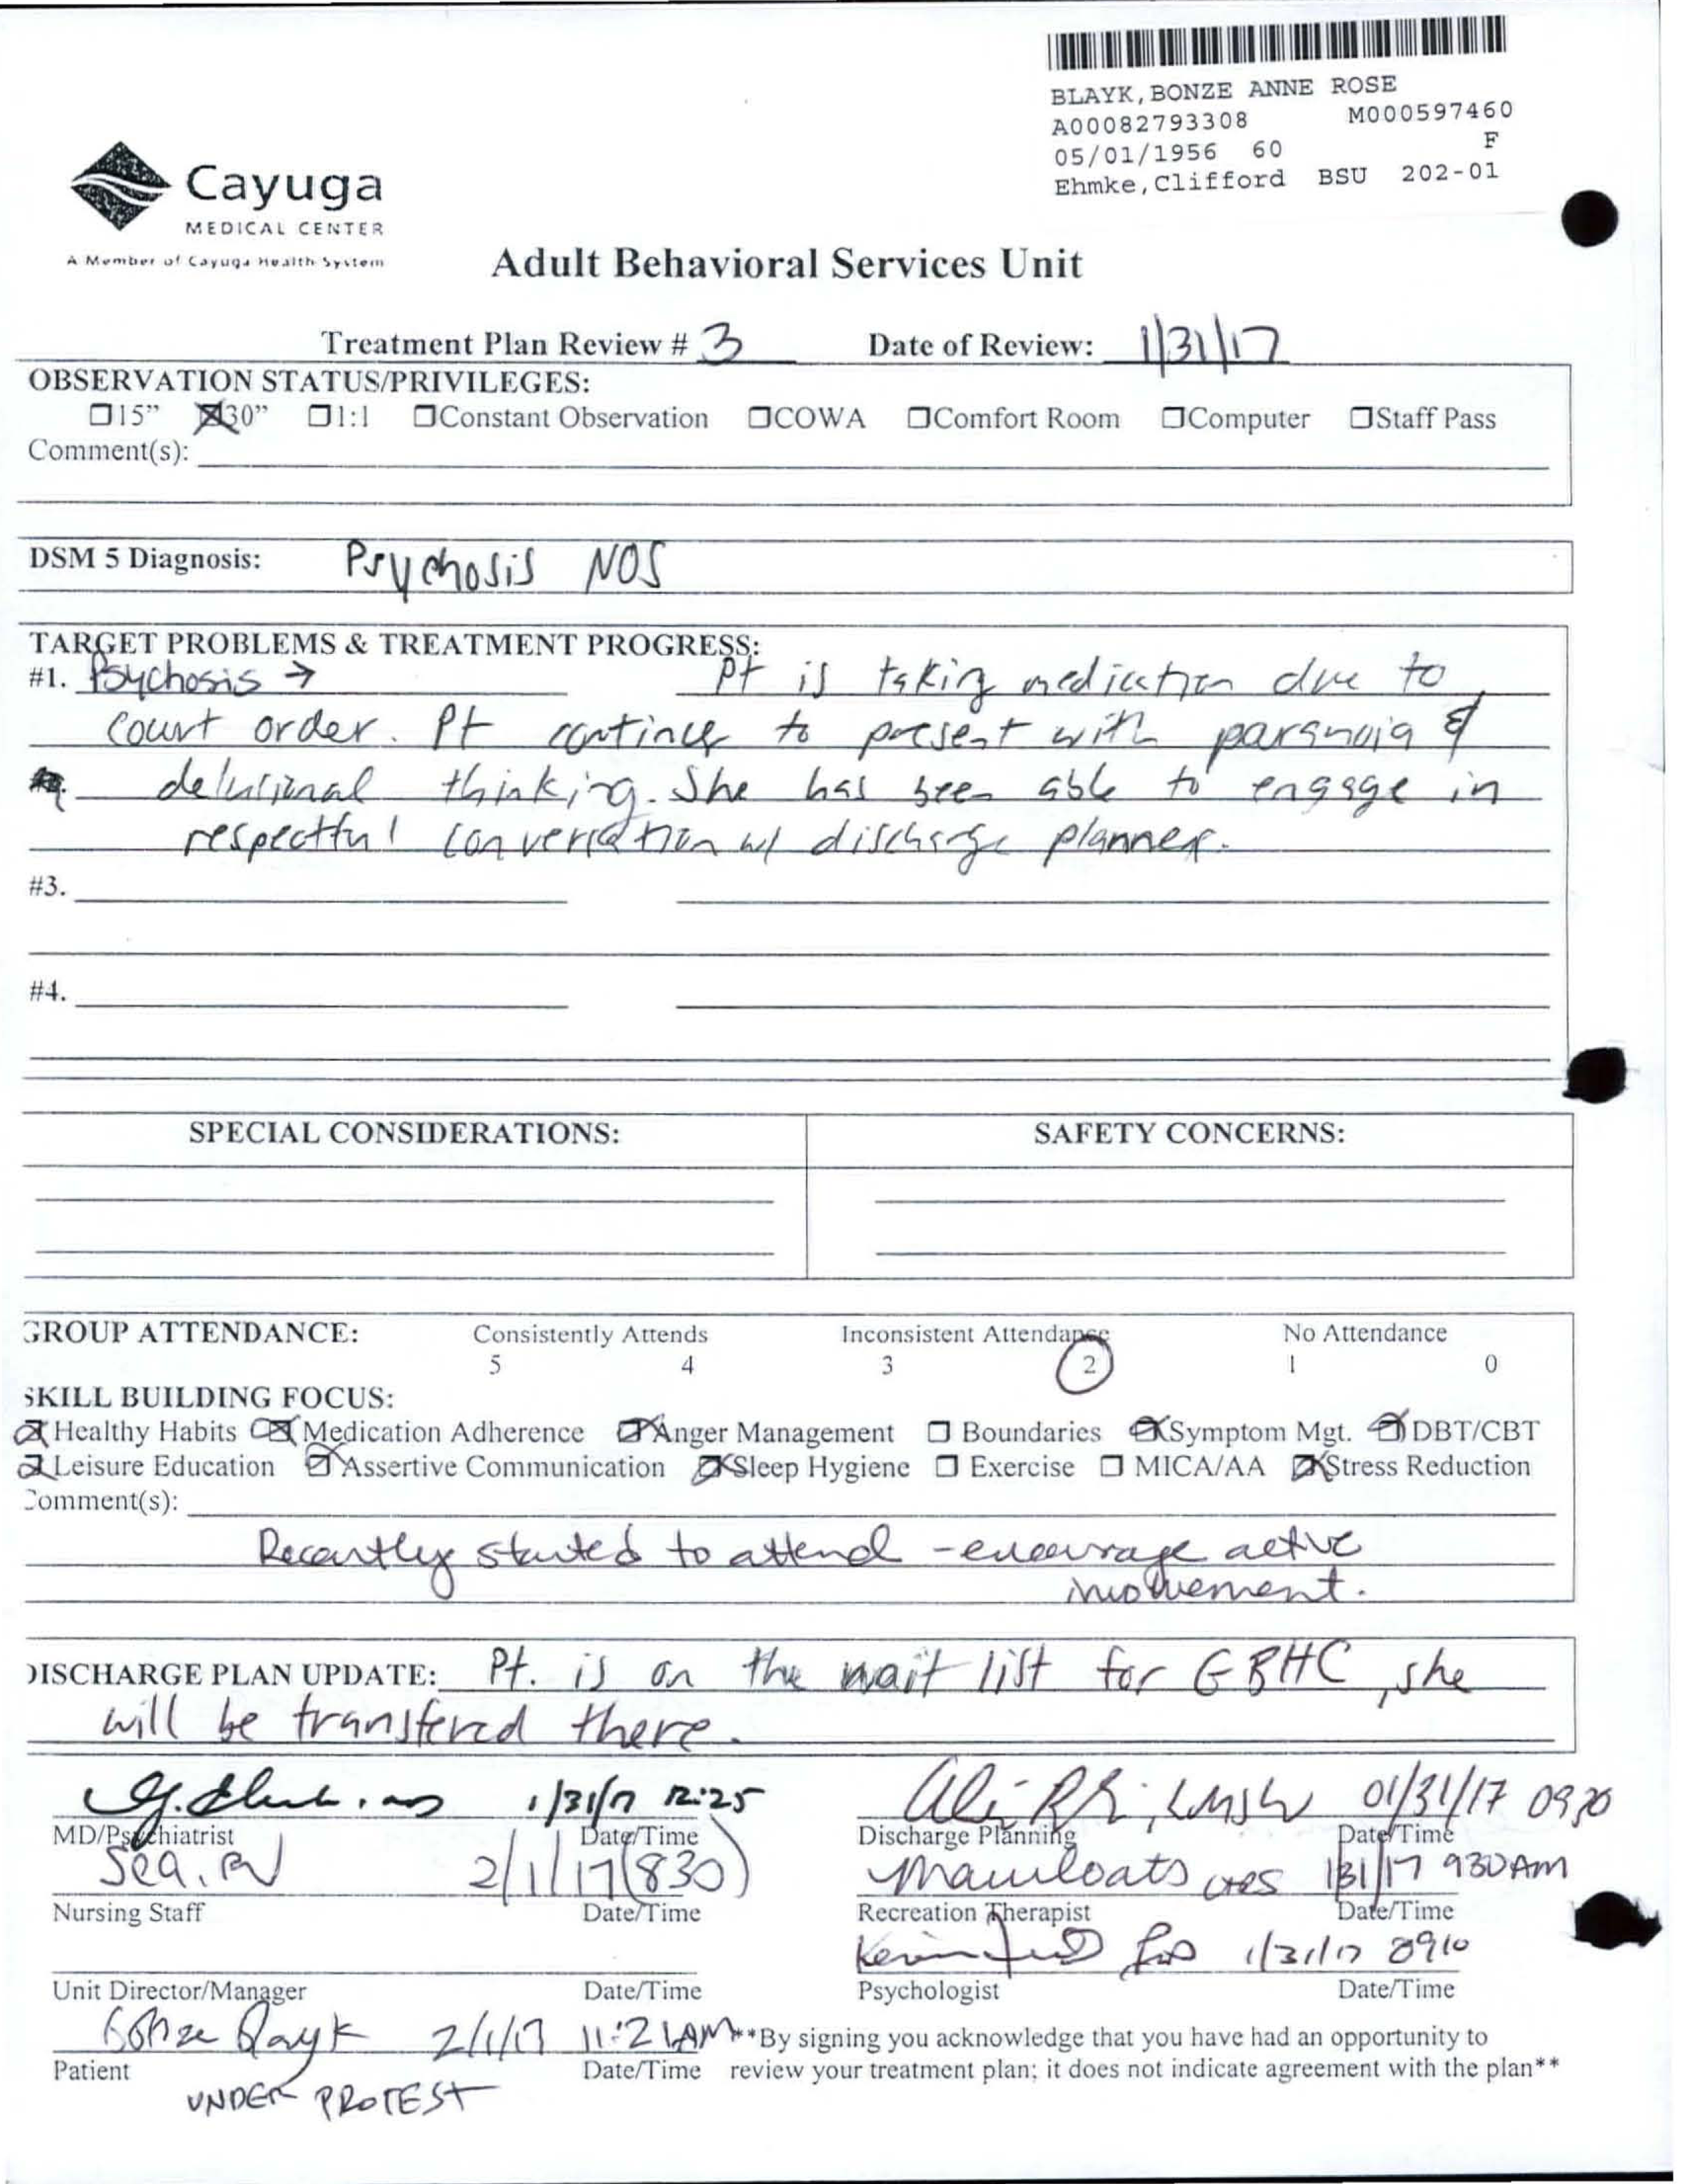 BLAYK, BONZE ANNE ROSE
A00082793308 M000597460
05/01/1956 60 F
Ehmke, Clifford BSU 202-01
Cayuga
MEDICAL CENTER
A Member of Cayuga Health System
Adult Behavioral Services Unit
Treatment Plan Review # 3 Date of Review: 1/31/17
OBSERVATION STATUS/PRIVILEGES:
☐15” ☒30” ☐1:1 ☐Constant Observation ☐COWA ☐Comfort Room ☐Computer ☐Staff Pass
Comment(s):
DSM 5 Diagnosis: Psychosis NOS
TARGET PROBLEMS & TREATMENT PROGRESS:
#1. Psychosis → Pt is taking medication due to
court order. Pt continues to present with paranoia &
delusional thinking. She has been able to engage in
respectful conversation w/ discharge planner.
#3.
#4.
SPECIAL CONSIDERATIONS: SAFETY CONCERNS:
GROUP ATTENDANCE: Consistently Attends Inconsistent Attendance No Attendance
5 4 3 2 1 0
SKILL BUILDING FOCUS:
☒Healthy Habits ☒Medication Adherence ☒Anger Management ☐ Boundaries ☒Symptom Mgt. ☒DBT/CBT
☒Leisure Education ☒Assertive Communication ☒Sleep Hygiene ☐ Exercise ☐ MICA/AA ☒Stress Reduction
Comment(s):
Recently started to attend - encourage active
involvement.
DISCHARGE PLAN UPDATE: Pt. is on the wait list for GBHC, she
will be transfered there.
1/31/17 12:25 LMSW 01/31/17 0930
MD/Psychiatrist Date/Time Discharge Planning Date/Time
RN 2/1/17 (830) 1/31/17 930AM
Nursing Staff Date/Time Recreation Therapist Date/Time
Kevin 1/31/17 0910
Unit Director/Manager Date/Time Psychologist Date/Time
Bonze Blayk 2/1/17 11:21AM **By signing you acknowledge that you have had an opportunity to
Patient Date/Time review your treatment plan; it does not indicate agreement with the plan**
UNDER PROTEST